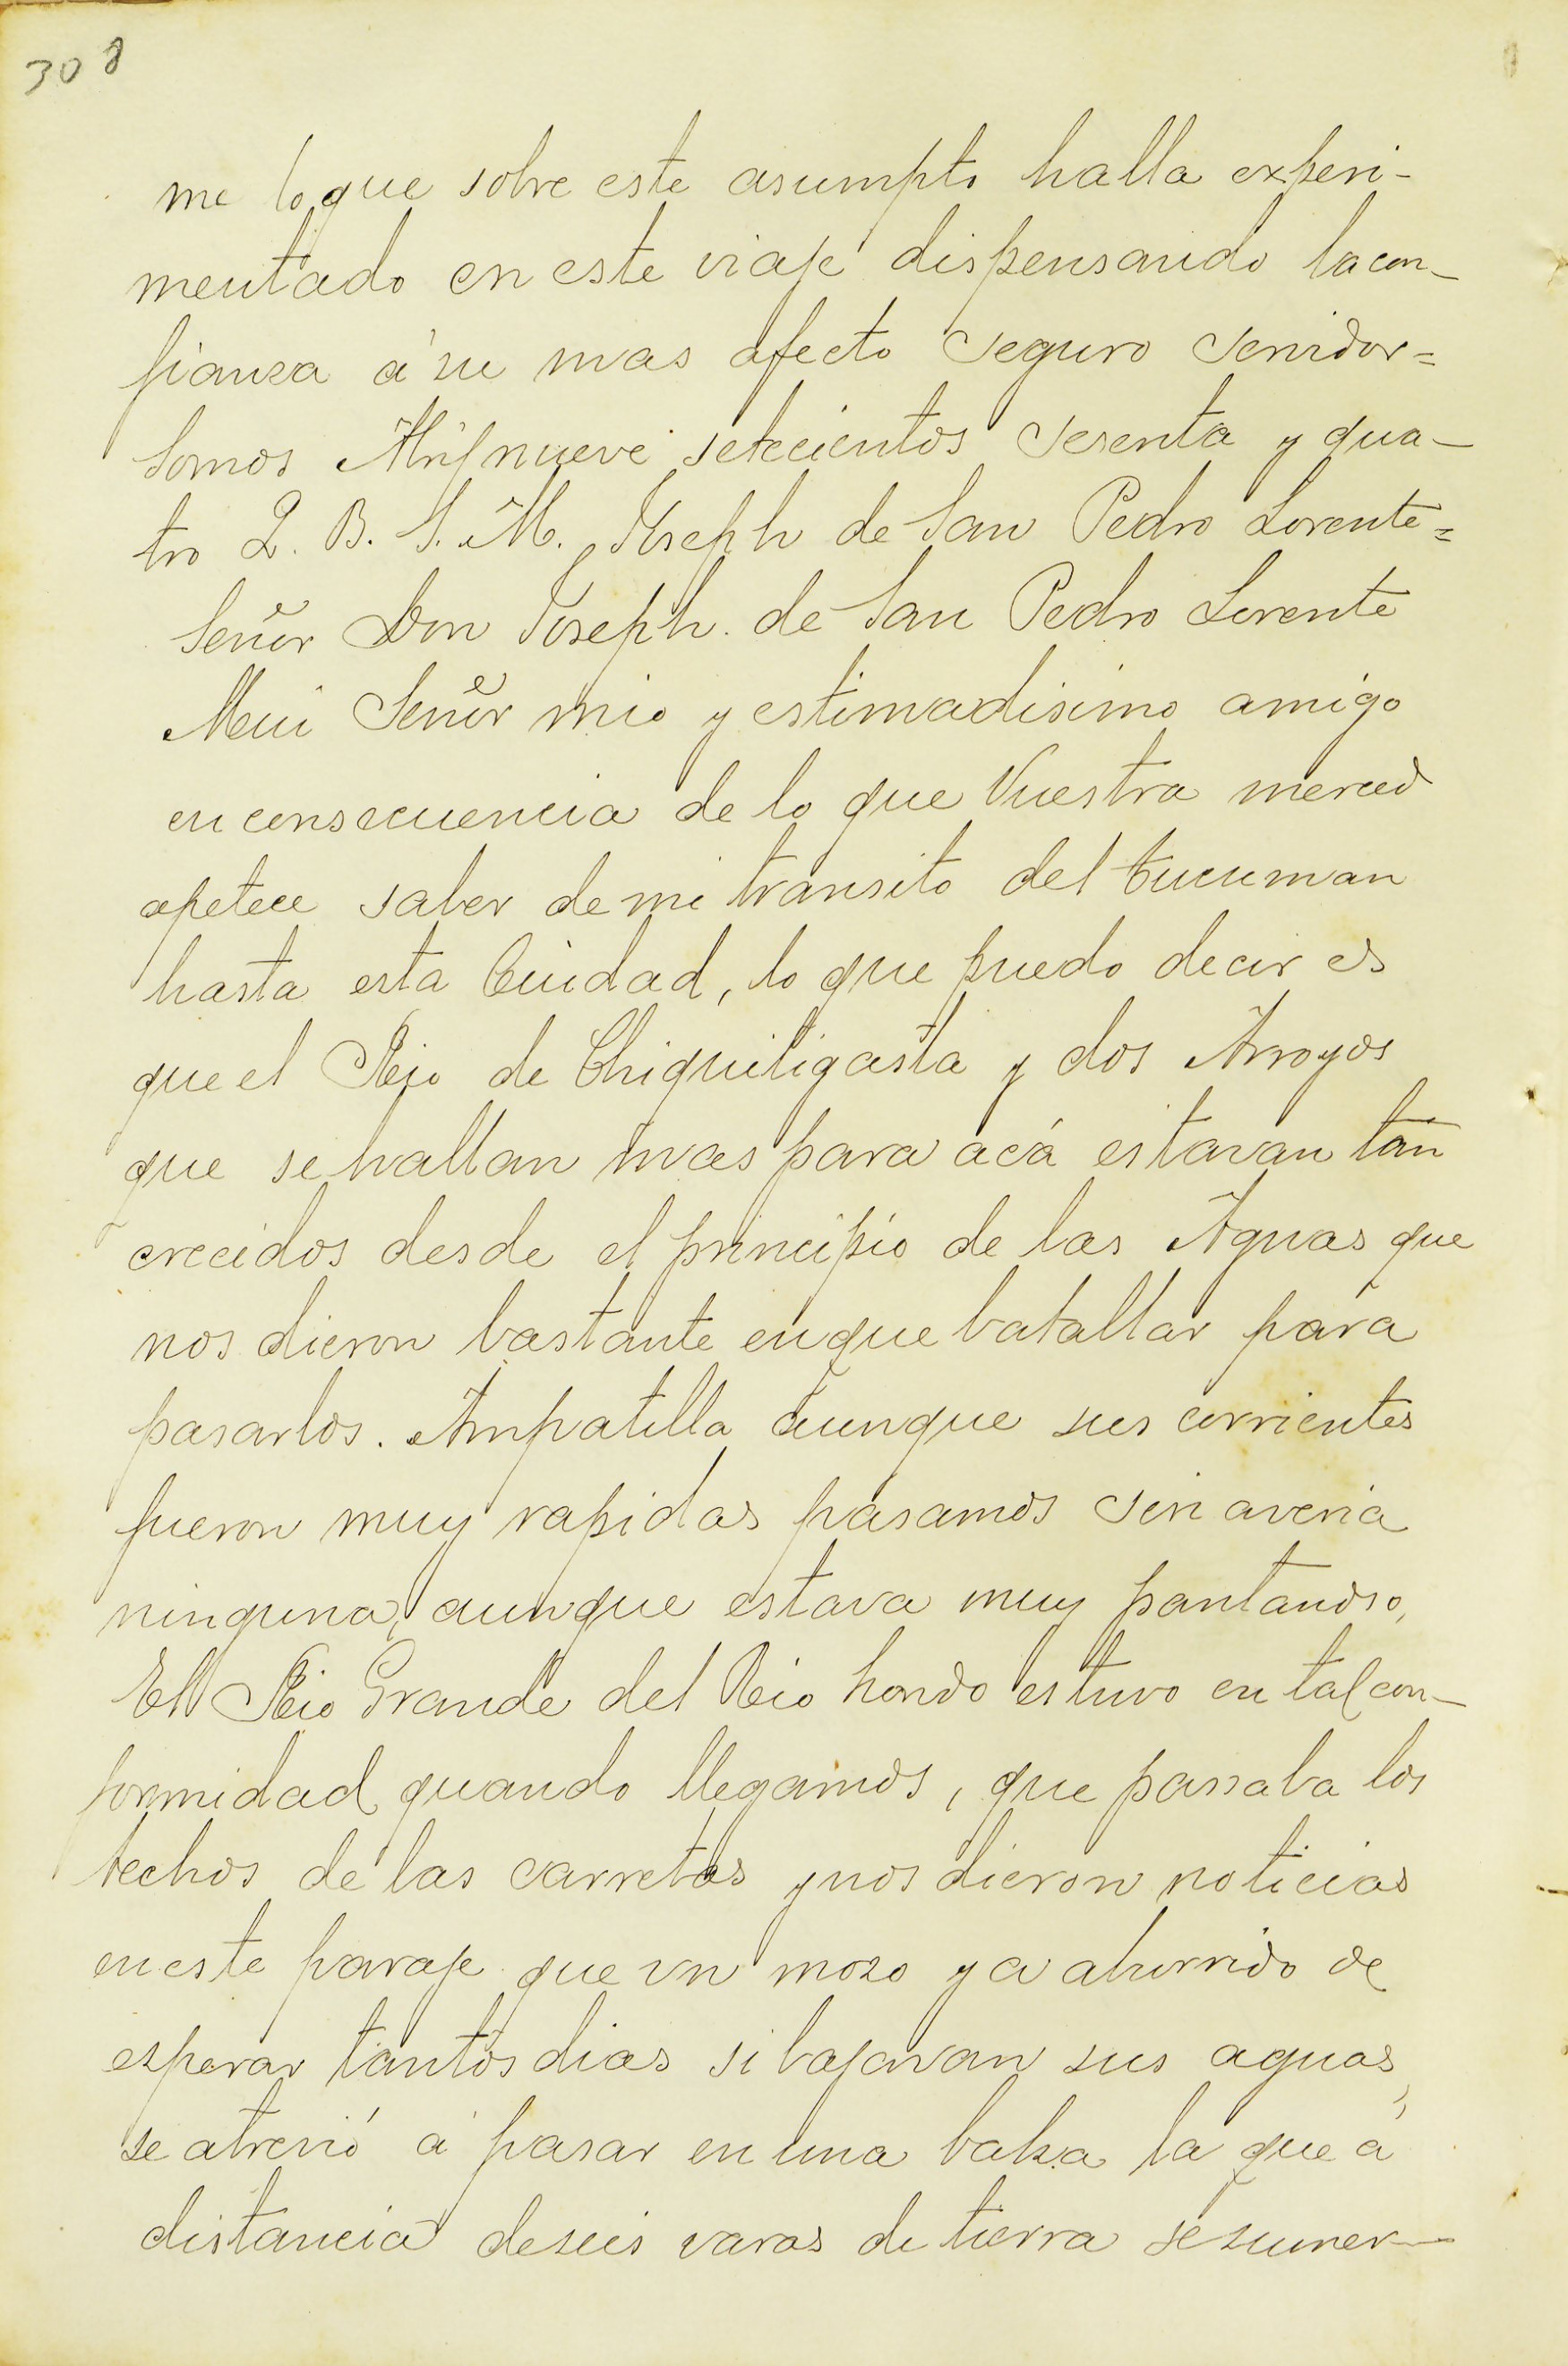 308
me lo que sobre este asumpto halla experi-
mentado en este viaje dispensando la con-
fianza á su mas afecto seguro servidor=
Somos Abril nueve setecientos sesenta y qua-
tro Q. B. S. M. Joseph de San Pedro Lorente=
Señor Don Joseph de San Pedro Lorente
Mui Señor mio y estimadisimo amigo
en consecuencia de lo que Vuestra merced
apetece saber de mi transito del tucuman
hasta esta Ciudad, lo que puedo decir es
que el Rio de Chiquiligasta y dos Arroyos
que se hallan mas para acá estavan tan
crecidos desde el principio de las Aguas que
nos dieron bastante en que batallar para
pasarlos. Ampatilla aunque sus corrientes
fueron muy rapidas pasamos sin averia
ninguna, aunque estava muy pantanoso,
El Rio Grande del Rio hondo estuvo en tal con-
formidad quando llegamos, que passaba los
techos de las carretas y nos dieron noticias
en este paraje que un moso ya aburrido de
esperar tantos dias si bajavan sus aguas,
se atrevió á pasar en una balsa la que á
distancia de seis varas de tierra se sumer-